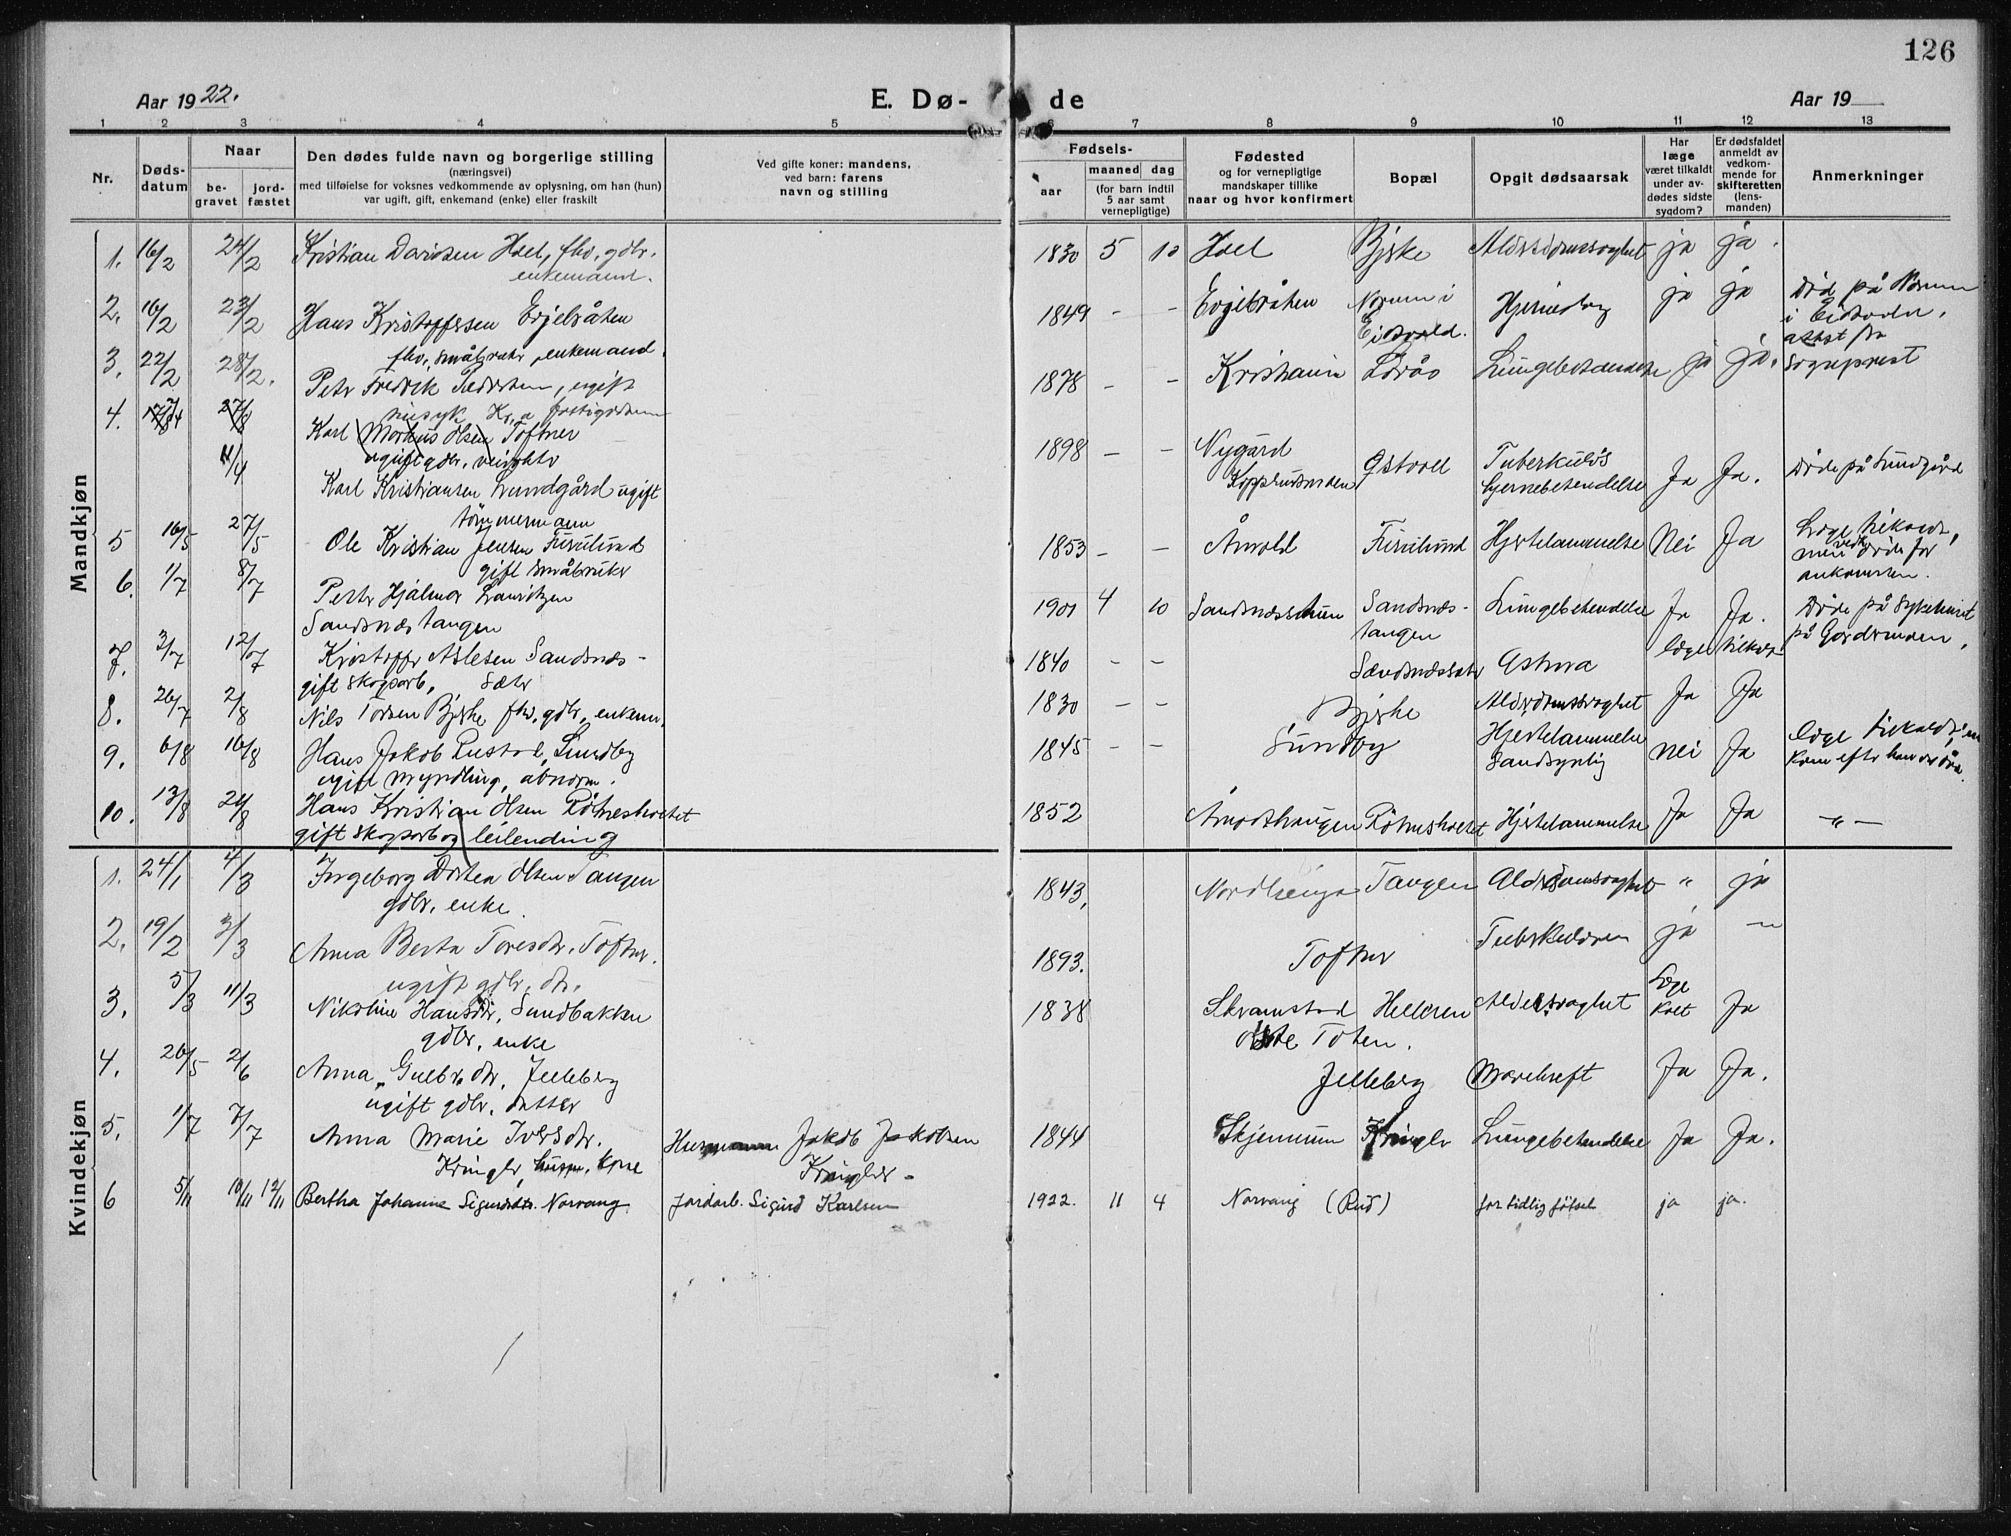 126
Aar 1922.
E. Dø- de
Aar 19
1 2 3 4 5 6 7 8 9 10 11 12 13
Nr.
Døds-
datum
Naar
be-
gravet
jord-
fæstet
Den dødes fulde navn og borgerlige stilling
(næringsvei)
med tilføielse for voksnes vedkommende av oplysning, om han (hun)
var ugift, gift, enkemand (enke) eller fraskilt
Ved gifte koner: mandens,
ved barn: farens
navn og stilling
Fødsels-
aar
maaned dag
(for barn indtil
5 aar samt
vernepligtige)
Fødested
og for vernepligtige
mandskaper tillike
naar og hvor konfirmert
Bopæl
Opgit dødsaarsak
Har
læge
været tilkaldt
under av-
dødes sidste
sygdom?
Er dødsfaldet
anmeldt av
vedkom-
mende for
skifteretten
(lens-
manden)
Anmerkninger
Mandkjøn
1. 16/2 24/2 Kristian Davidsen Hoel, fhv. gdbr. 1830 5 10 Hoel Bjerke Alderdomssvaghet ja ja.
enkemand.
2. 16/2 23/2 Hans Kristoffersen Evjebråten 1849 - - Evjebråten Norum i Hjerneslag ja ja Død på
Eidsvold.
fhv. småbruker, enkemand.
3. 22/2 28/2. Peter Fredrik ugift 1878 - - Kristiania Lungebetændelse ja ja. Sogneprest
4. 27/8
Karl Markus Olsen Toftner
ugift gdbr.
4/4 1898 - - Nygård Tuberkuløs
Karl Kristiansen Lundgård ugift hjernebetendelse Ja Ja. Døde på Lundgård
tømmermann
5 16/5 27/5 Ole Kristian Jensen Furulund 1853 - - Årnold Furulund Hjertelammelse Nei Ja Læge tilkaldt,
gift småbruker men døde før
ankomsten.
6. 1/7 8/7 Peder Hjalmar Lauritzen 1901 4 10 Sandsnæs- Lungebetendelse Ja Ja. Døde på Sykehuset
Sandsnæstangen tangen på Gardermoen.
7. 3/7 12/7 Kristoffer Aslesen Sandsnæs- 1840 - - Sandsnæssæter Astma læge tilkaldt
gift skogsarb. Sæter
8. 26/7 2/8 Nils Torsen Bjerke fhv. gdbr. enkem. 1830 - - Bjerke Alderdomssvaghet Ja Ja
9. 6/8 16/8 Hans Jakob Pustad, Sundby 1845 - - Sundby Hjertelammelse nei Ja læge tilkaldt,
ugift myndling, abnorm. Sandsynlig kom efter han var død.
10. 13/8 20/8 Hans Kristian Olsen Rötneshaetet 1852 Rötneshaetet Hjertelammelse Ja Ja - " -
gift skogsarb og leilending
Kvindekjøn
1. 24/1 4/3 Ingeborg Dortea Olsen Tangen 1843. Tangen Alderdomssvaghet " ja
gdbr. enke.
2. 19/2 3/3 Anna Berta Toresdtr. Toftner. 1893. Toftner Tuberkulosen ja
ugift gdbr. dtr.
3. 5/3 11/3 Nikoline Hansdtr. Sundbakken 1838 Skramstad Helleren Alderssvaghet Ja
gdbr. enke Østre Toten.
4. 26/5 2/6 Anna Gulbr. dtr. Jelleberg Jelleberg Mavekreft Ja Ja.
ugift gdbr. datter
5. 1/7 7/7 Anna Marie Iversdtr. Husmann Jakob Jakobsen 1844 Skjennum Kringler Lungebetendelse Ja Ja.
Kringler, husm. kone Kringler
6 5/11 10/11 12/11 Bertha Johanne Sigurdsdtr. Norvang. Jordarb. Sigurd Karlsen 1922. 11 4 Norvang (Rud) for tidlig fötsel ja ja.